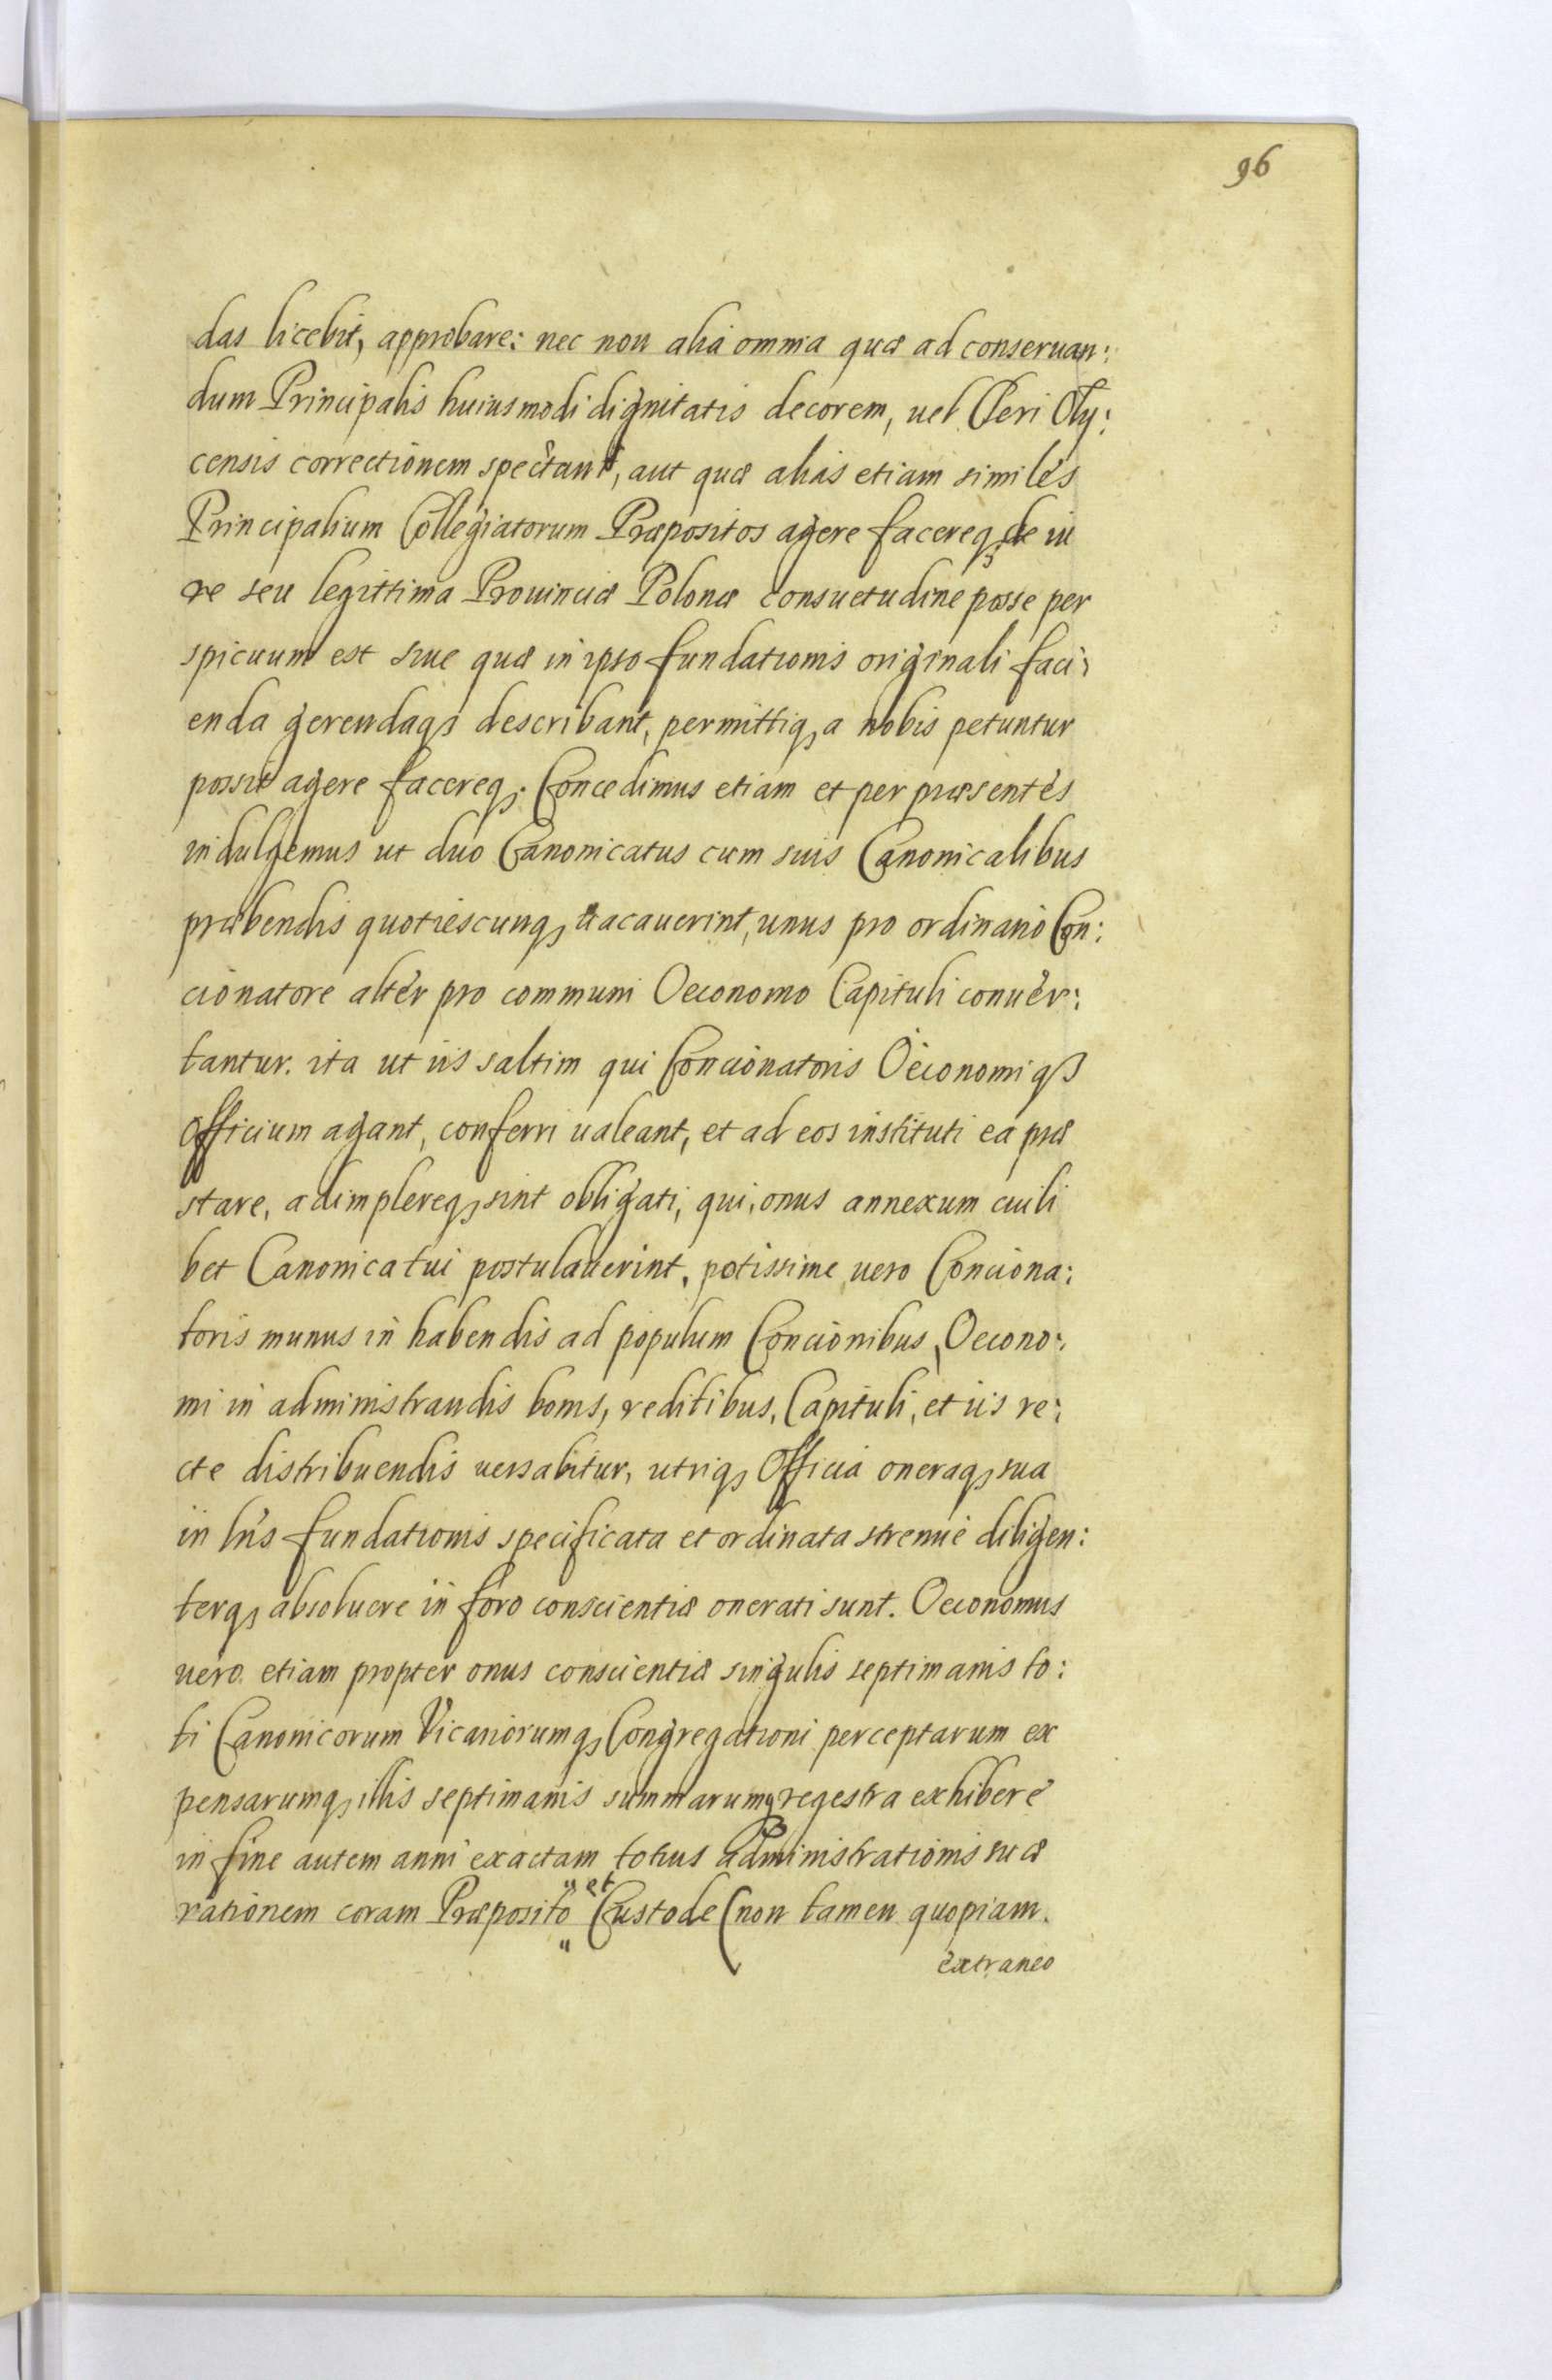 96
das licebit, approbare: nec non alia omnia quæ ad conseruan:
dum Principalis huiusmodi dignitatis decorem, uel Cleri Oly:
censis correctionem spectant, aut quæ alias etiam similes
Principalium Collegiatorum Præpositos agere facereq; de iu
re seu legittima Prouinciæ Polonæ consuetudine posse per
spicuum est siue quæ in ipso fundationis originali faci:
enda gerendaq; describant, permittiq; a nobis petuntur
possit agere facereq;. Concedimus etiam et per præsentes
indulgemus ut duo Canonicatus cum suis Canonicalibus
præbendis quotiescunq; uacauerint, unus pro ordinario Con:
cionatore alter pro communi Oeconomo Capituli conuer:
tantur. ita ut iis saltim qui Concionatoris Oeconomiq;
officium agant, conferri ualeant, et ad eos instituti ea præ
stare, adimplereq; sint obligati, qui, onus annexum cuili
bet Canonicatui postulauerint, potissime uero Conciona:
toris munus in habendis ad populum Concionibus, Oecono:
mi in administrandis bonis, reditibus, Capituli, et iis re:
cte distribuendis uersabitur, utriq; Officia oneraq; sua
in lris fundationis specificata et ordinata strenue diligen:
terq; absoluere in foro conscientiæ onerati sunt. Oeconomus
uero etiam propter onus conscientiæ singulis septimanis to:
ti Canonicorum Vicariorumq; Congregationi perceptarum ex
pensarumq; illis septimanis summarumq; regestra exhibere
in fine autem anni exactam totius administrationis suæ
rationem coram Præposito " et Custode (non tamen quopiam.
extraneo